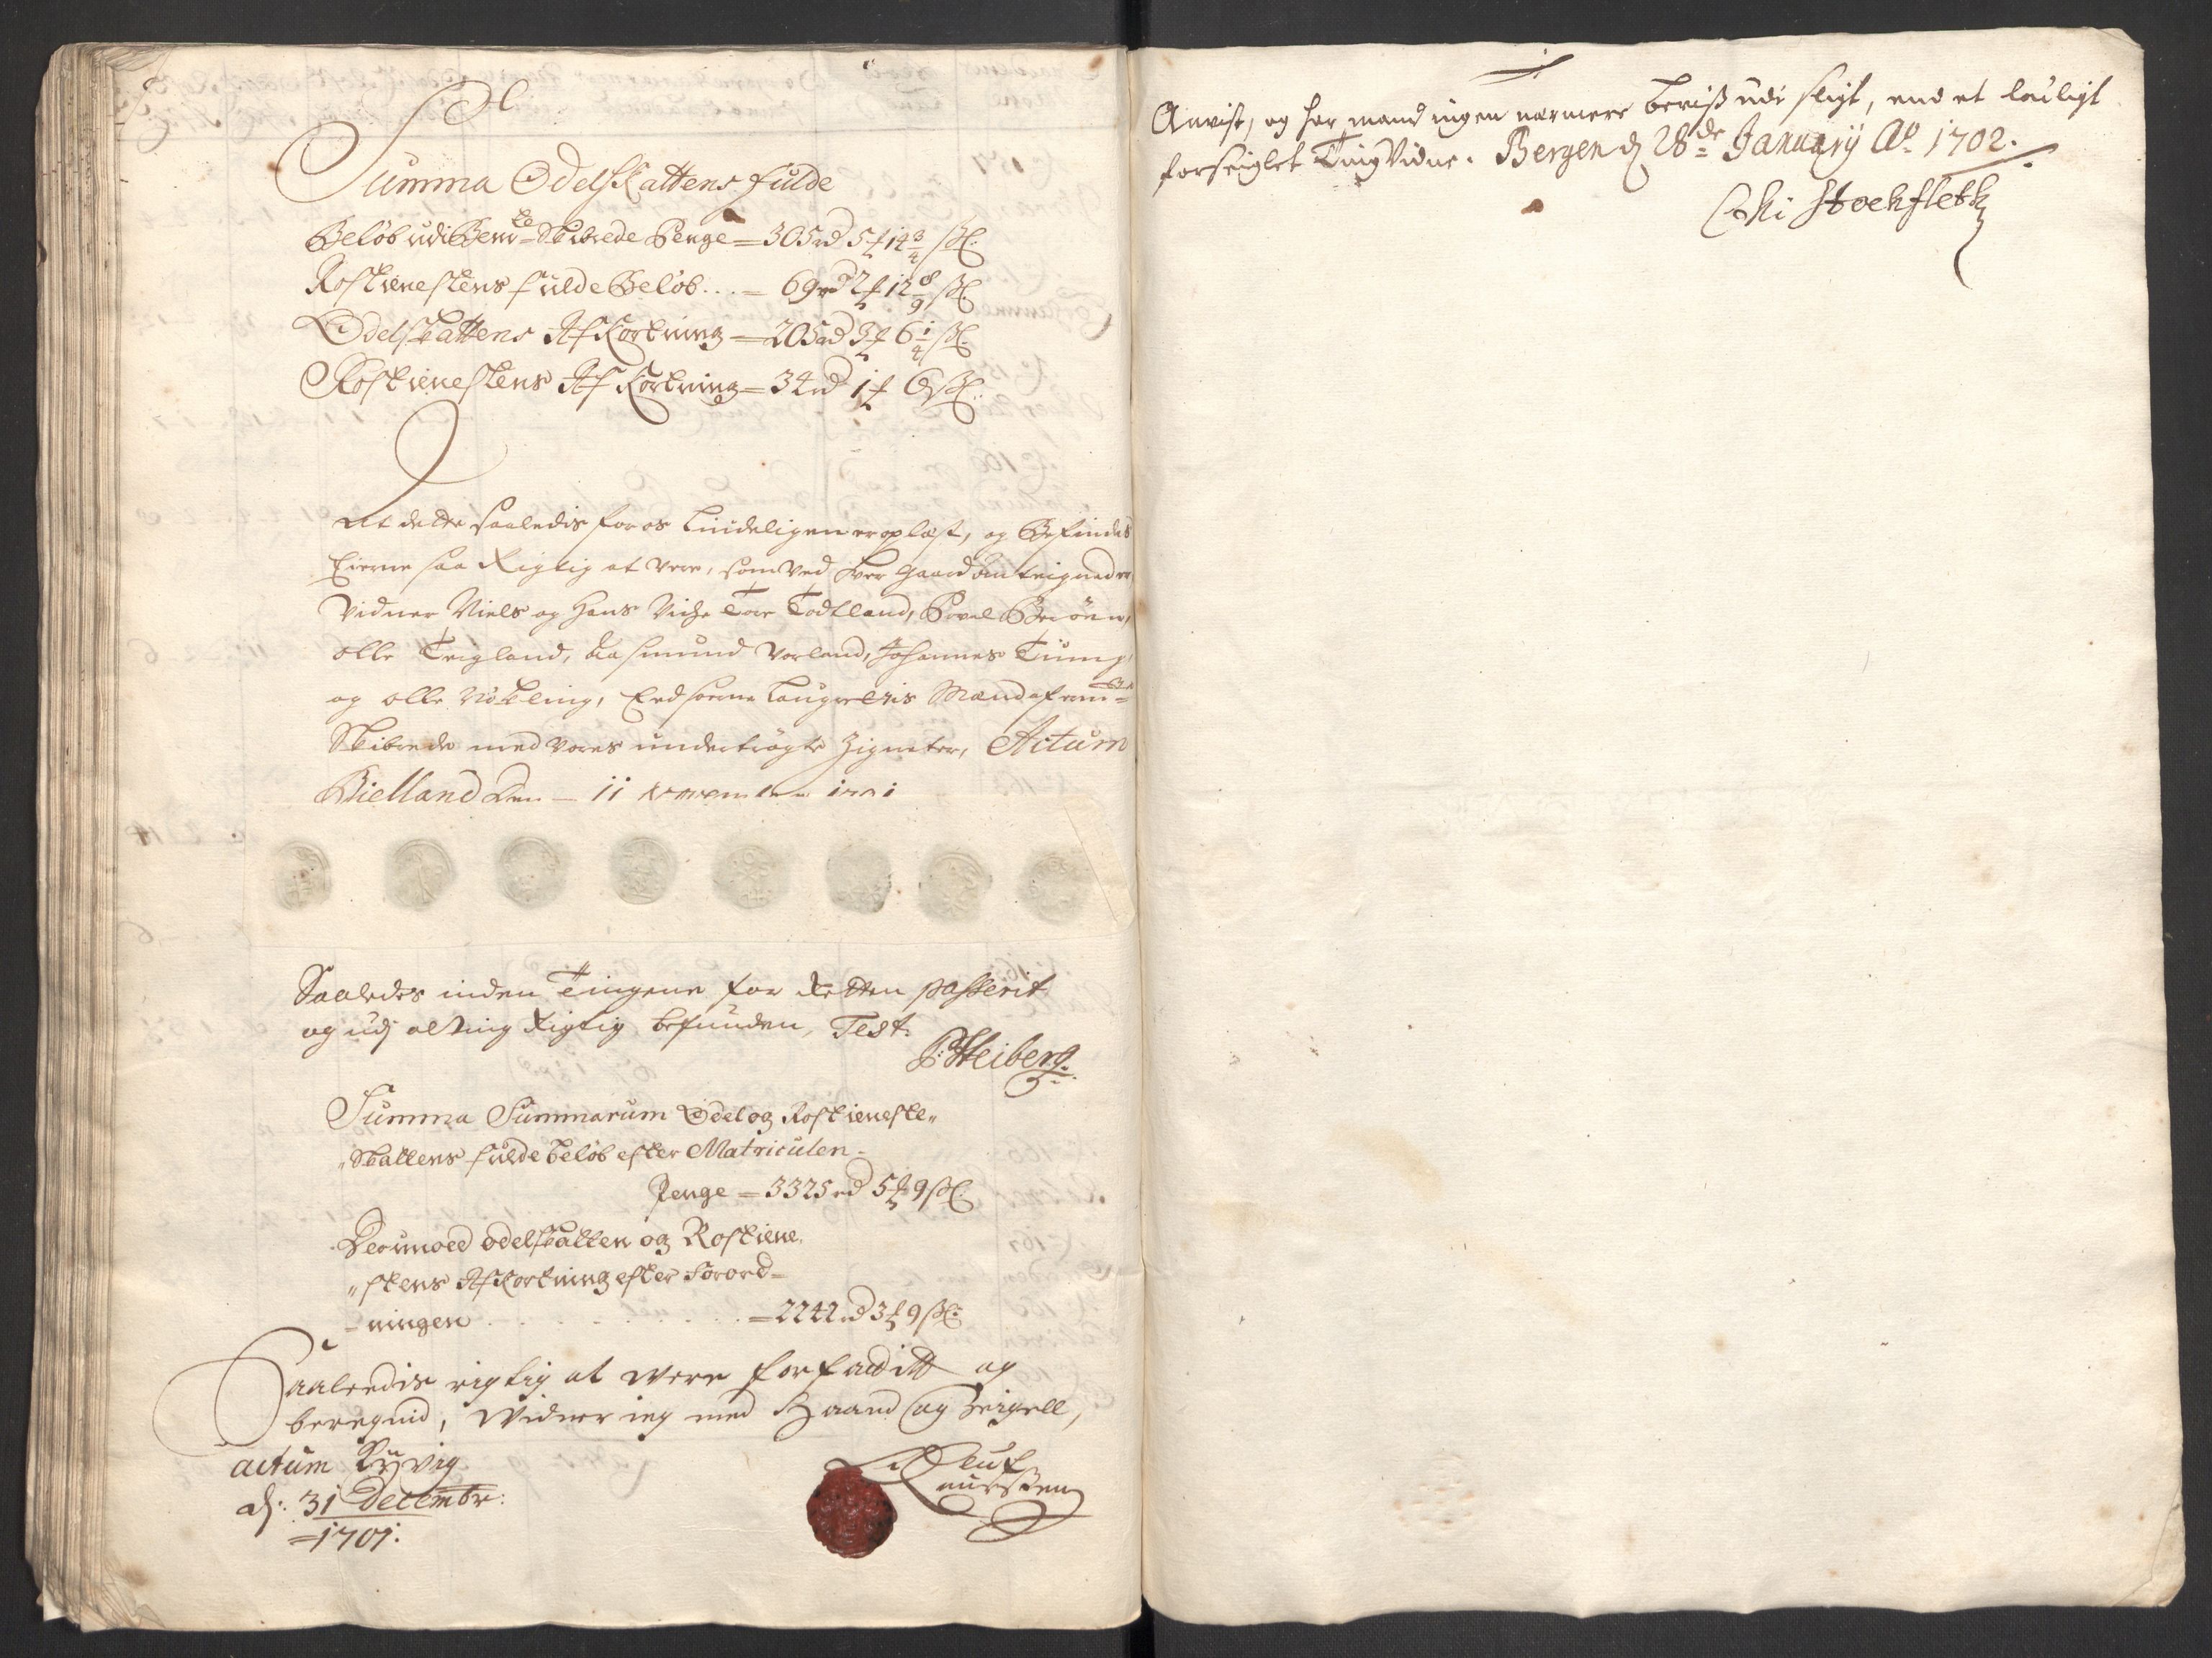 Summa Odelskattens fulde
Beløb udi Skibrede Penge = 305 rd 5 ꝑ 14 3/4 ß
Rostienestens fulde Beløb... = 69 rd 2 ꝑ 12 8/9 ß
Odelskattens Afkortning = 205 rd 3 ꝑ 6 1/4 ß
Rostienestens Afkortning = 34 rd 1 ꝑ 6 ß
At dette saaledis for os lindeligen er oplæst, og Befindes
Eierne saa Rigtig at vere, som ved hver gaard anteigned er
Vidner Niels og Hans Viche Tore Todland, Povel
olle Teigland, Aasmund Vorland, Johannes Tung,
og olle Nøkling, Eedsorne Laugrettis Mænd af
Skibrede med vores undertrøgte Zigneter, Actum
Bielland den 11 November 1701
Saaledes inden Tingene for Retten passerit
og udj alting Rigtig befunden, Test:
Heiberg
Summa Summarum Odel og Rostieneste„
„Skattens fulde beløb efter Matriculen =
Penge = 3325 rd 5 ꝑ 9 ß
Derimoed odelskatten og Rostiene„
„stens Afkortning efter Forord=
=ningen . . . . . . . =2242 rd 3 ꝑ 9 ß
Saaledis rigtig at were forfattitt og
beregnid, Widner ieg med Haand og Zeigell,
actum
dj: 31 Decembr:
=1701.
Anvist, og har mand ingen nærmere beviß udi sligt, end et lauligt
forseiglet TingVidne. Bergen d 28de January Ao 1702.
Stockfleth